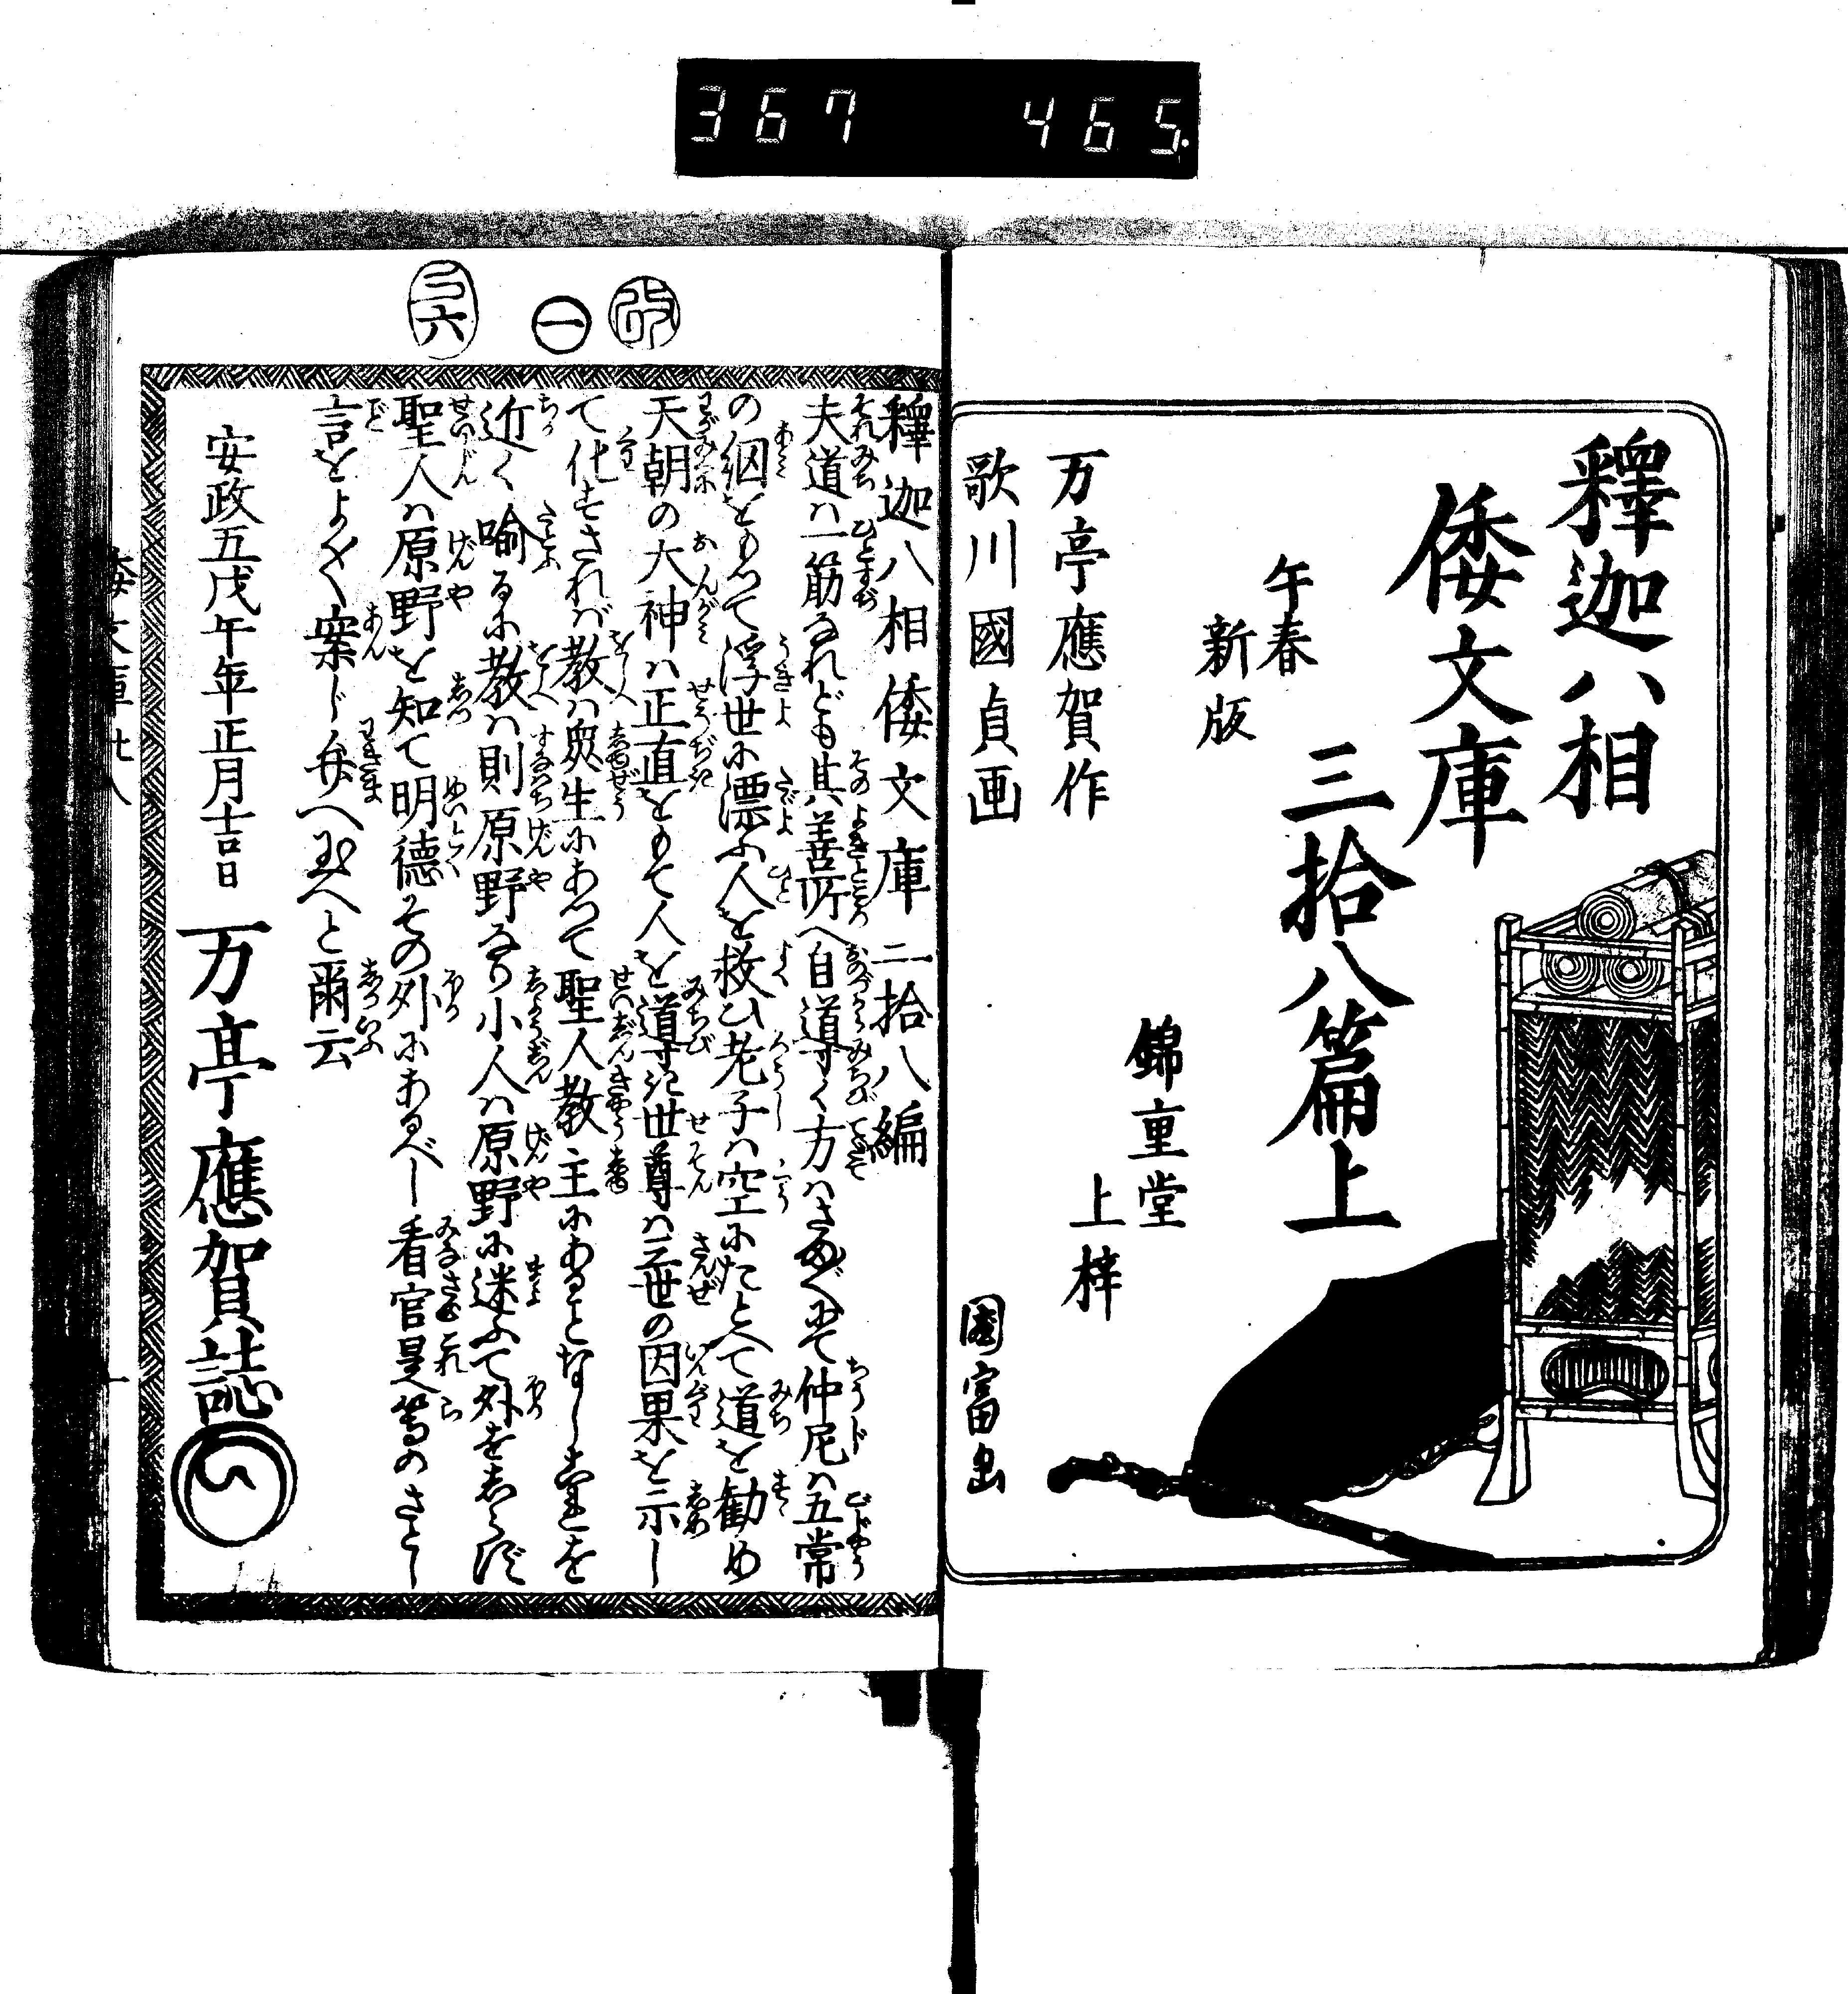 367 465
釋迦八相
倭文庫
三拾八篇上
午春
新版
錦重堂
上梓
万亭應賀作
歌川國貞画
國富出
改
一
巳六
釋迦八相倭文庫三拾八編
夫道ハ一筋なれども其善所へ自導く方ハさま〴〵にて仲尼ハ五常
の綱をもつて浮世に漂ふ人を救ひ老子ハ空にたとへて道を勧め
天朝の大神ハ正直をもて人を道導き世尊ハ三世の因果を示し
て化すされバ教ハ衆生にあつて聖人教主にあることなし是を
近く喩るに教ハ則原野なり小人ハ原野に迷ふて外をしらず
聖人ハ原野を知て明徳その外にあるべし看官是等のさとし
言をよく〳〵案じ弁へ玉へと爾云
安政五戊午年正月吉日
万亭應賀誌
倭文庫卅八
一